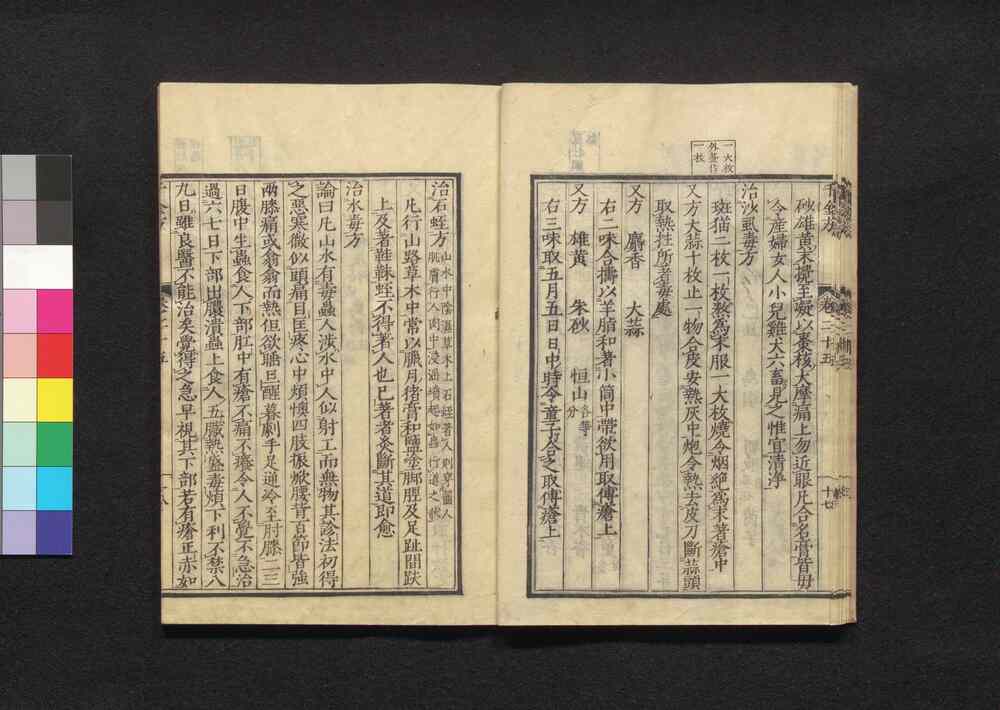 一大枚
外臺作
一枚
千金方 卷二十五 十七
砂雄黃末攪至凝以棗核大摩痛上勿近眼凡合名膏皆毋
令產婦女人小兒雞犬六畜見之惟宜清淨
治沙虱毒方
斑猫二枚一枚熬爲末服一大枚燒令烟絕爲末著瘡中
又方大蒜十枚止一物合皮安熱灰中炮令熱去皮刀斷蒜頭
取熱拄所著毒處
又方 麝香 大蒜
右二味合擣以羊脂和著小筒中帶欲用取傅瘡上
又方 雄黃 朱砂 恒山各等分
右三味取五月五日日中時令童子合之取傅瘡上
治石蛭方山水中陰濕草木上石蛭著人則穿齧人
肌膚行人肉中浸淫墳起如蟲行道之狀
凡行山路草木中常以臘月猪膏和鹽塗脚脛及足趾間趺
上及著鞋襪蛭不得著人也已著者灸斷其道即愈
治水毒方
論曰凡山水有毒蟲人涉水中人似射工而無物其診法初得
之惡寒微似頭痛目匡疼心中煩懊四肢振焮腰背百節皆強
兩膝痛或翕翕而熱但欲睡旦醒暮劇手足逆冷至肘膝二三
日腹中生蟲食人下部肛中有瘡不痛不癢令人不覺不急治
過六七日下部出膿潰蟲上食人五臟熱盛毒煩下利不禁八
九日雖良醫不能治矣覺得之急早視其下部若有瘡正赤如